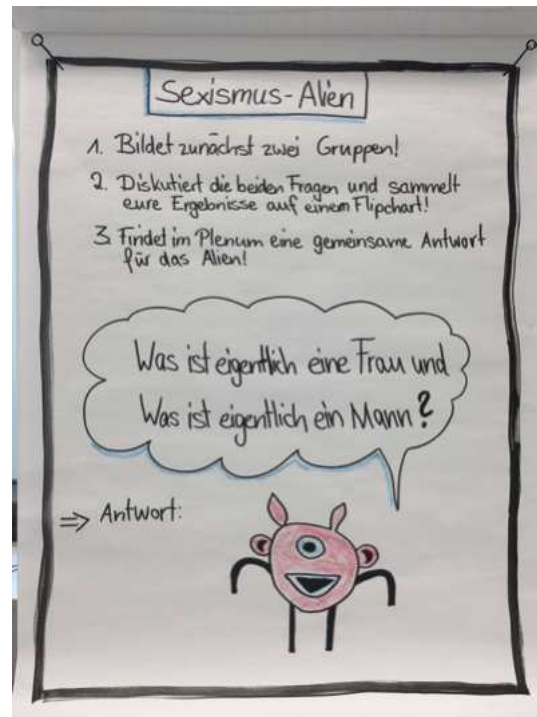 Sexismus-Alien
1. Bildet zunächst zwei Gruppen!
2. Diskutiert die beiden Fragen und sammelt
eure Ergebnisse auf einem Flipchart!
3. Findet im Plenum eine gemeinsame Antwort
für das Alien!
Was ist eigentlich eine Frau und
Was ist eigentlich ein Mann?
⇒ Antwort: